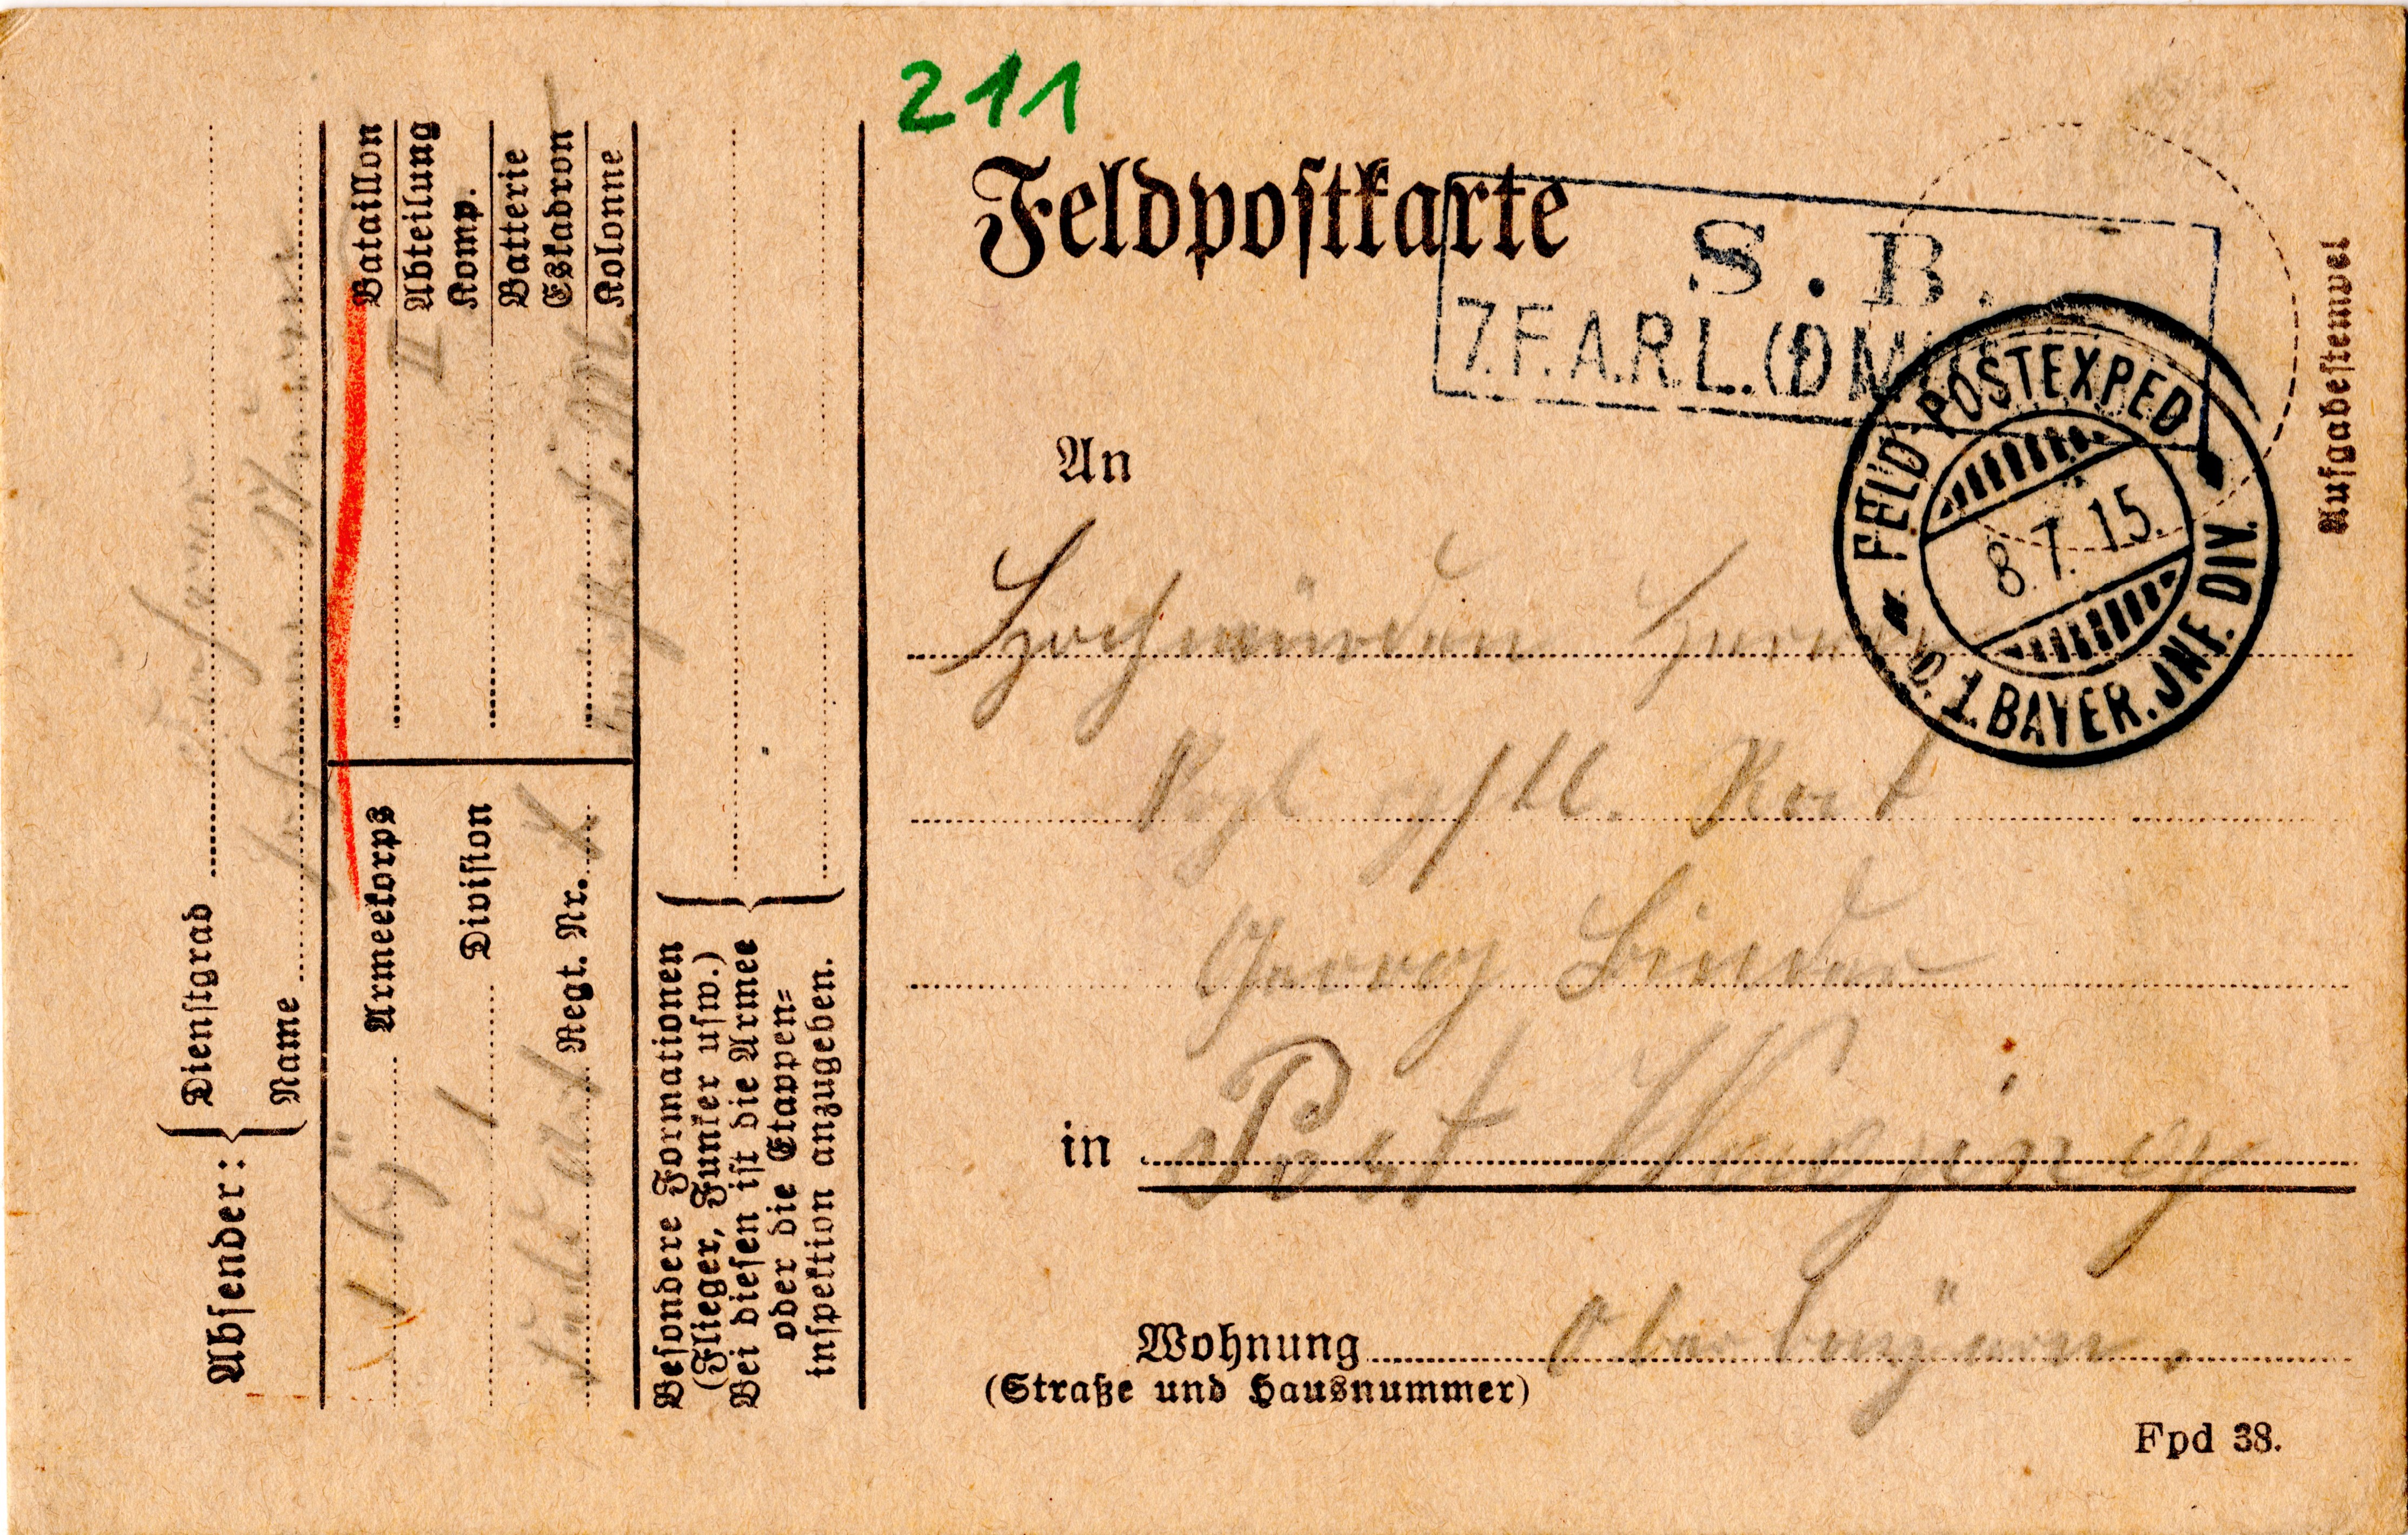 211
Feldpostkarte
S. B.
7. F. A. R. L. (DM
FELD-POSTEXPED.
D. 1. BAYER. JNF. DIV.
8. 7. 15.
Aufgabestempel
An
Hochwürden Herrn
Kgl. gstl. Rat
Georg Binder
in Post
Wohnung Oberbayern.
(Straße und Hausnummer)
Fpd 38.
Absender:
Dienstgrad
Name
1. by. Armeekorps
1 Division
Regt. Nr.
Bataillon
Abteilung II
Komp.
Batterie
Eskadron
Kolonne
Besondere Formationen
(Flieger, Funker usw.)
Bei diesen ist die Armee
oder die Etappen=
inspektion anzugeben.